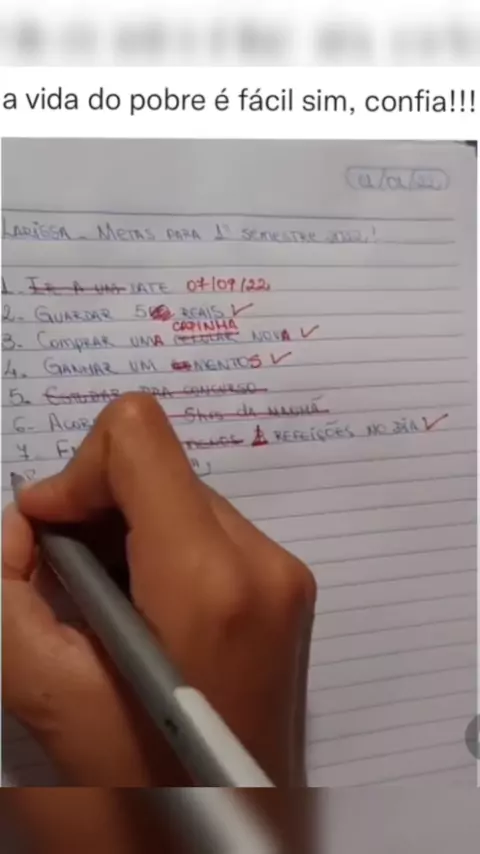 a vida do pobre é fácil sim, confia!!!
LARISSA - METAS PARA 1° SEMESTRE 2022!
1. IR A UM IATE 07/09/22
2. GUARDAR 5 REAIS ✓
CAPINHA
3. COMPRAR UMA CELULAR NOVA ✓
4. GANHAR UM MENTOS ✓
5. ESTUDAR PRA CONCURSO
6. 5hrs da MANHÃ
7. MENOS 1 REFEIÇÕES NO DIA ✓